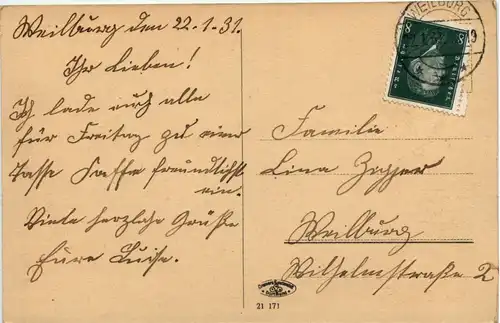 Weilburg den 22.1.31.
Ihr Lieben!
Ich lade euch alle
für Freitag zu einer
Tasse Kaffe freundlichst
ein.
Viele herzliche Grüße
Eure Luise.
WEILBURG
8 8
Familie
Lina Zipper
Weilburg
Wilhelmstraße 2
21 171